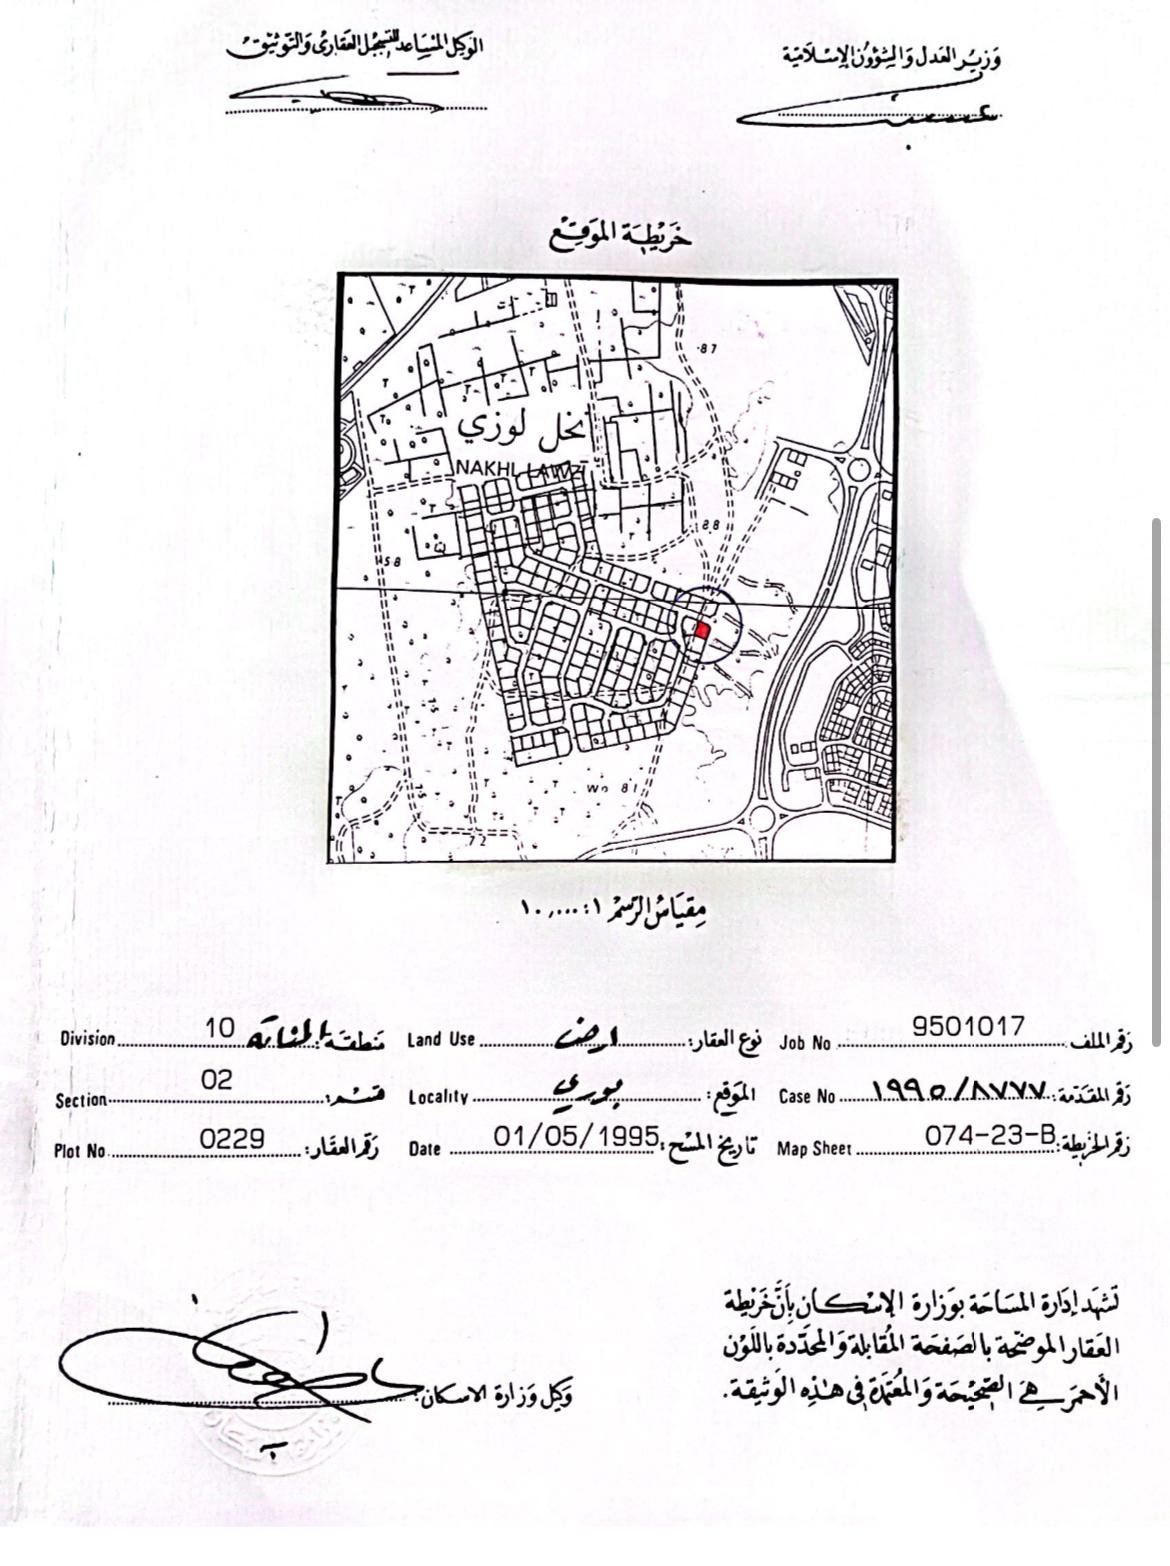 وزير العدل والشؤون الإسلامية
الوكيل المساعد للتسجيل العقاري والتوثيق
خريطة الموقع
87
نخل لوزي
NAKHL LAWZI
88
58
Wo 81
72
مقياس الرسم ١:١٠,٠٠٠
رقم الملف 9501017 Job No
نوع العقار: ارض Land Use
منطقة: المنامة 10 Division
رقم المقدمة: ١٩٩٥/٨٧٧٧ Case No
الموقع: بوري Locality
قسم: 02 Section
رقم الخريطة: 074-23-B Map Sheet
تاريخ المسح: 01/05/1995 Date
رقم العقار: 0229 Plot No
تشهد إدارة المساحة بوزارة الإسكان بأن خريطة
العقار الموضحة بالصفحة المقابلة والمحددة باللون
الأحمر هي الصحيحة والمعتمدة في هذه الوثيقة.
وكيل وزارة الاسكان: